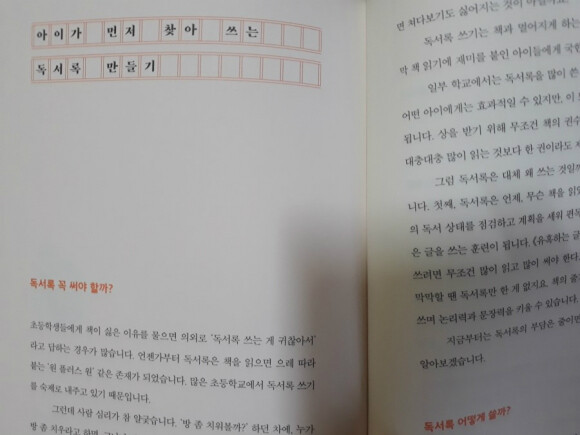 아이가 먼저 찾아 쓰는
독서록 만들기
독서록 꼭 써야 할까?
초등학생들에게 책이 싫은 이유를 물으면 의외로 '독서록 쓰는 게 귀찮아서'
라고 답하는 경우가 많습니다. 언젠가부터 독서록은 책을 읽으면 으레 따라
붙는 '원 플러스 원' 같은 존재가 되었습니다. 많은 초등학교에서 독서록 쓰기
를 숙제로 내주고 있기 때문입니다.
그런데 사람 심리가 참 얄궂습니다. '방 좀 치워볼까?' 하던 차에, 누가
방 좀 치우라고 하면
면 쳐다보기도 싫어지는 것이
독서록 쓰기는 책과 멀어지게 하는
막 책 읽기에 재미를 붙인 아이들에게 국한
일부 학교에서는 독서록을 많이 쓴
어떤 아이에게는 효과적일 수 있지만, 이
됩니다. 상을 받기 위해 무조건 책의 권수
대충대충 많이 읽는 것보다 한 권이라도
그럼 독서록은 대체 왜 쓰는 것일까
니다. 첫째, 독서록은 언제, 무슨 책을 읽었
의 독서 상태를 점검하고 계획을 세워 편독
은 글을 쓰는 훈련이 됩니다. 《유혹하는 글
쓰려면 무조건 많이 읽고 많이 써야 한다.
막막할 땐 독서록만 한 게 없지요. 책의 줄
쓰며 논리력과 문장력을 키울 수 있습니다.
지금부터는 독서록의 부담은 줄이면
알아보겠습니다.
독서록 어떻게 쓸까?